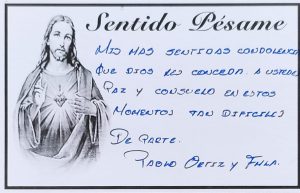 Sentido Pésame
Mis mas sentidas condolencia
Que Dios les conceda. A ustede
Paz y consuelo en estos
Momentos tan dificiles
De parte.
Pablo Ortiz y Fmla.